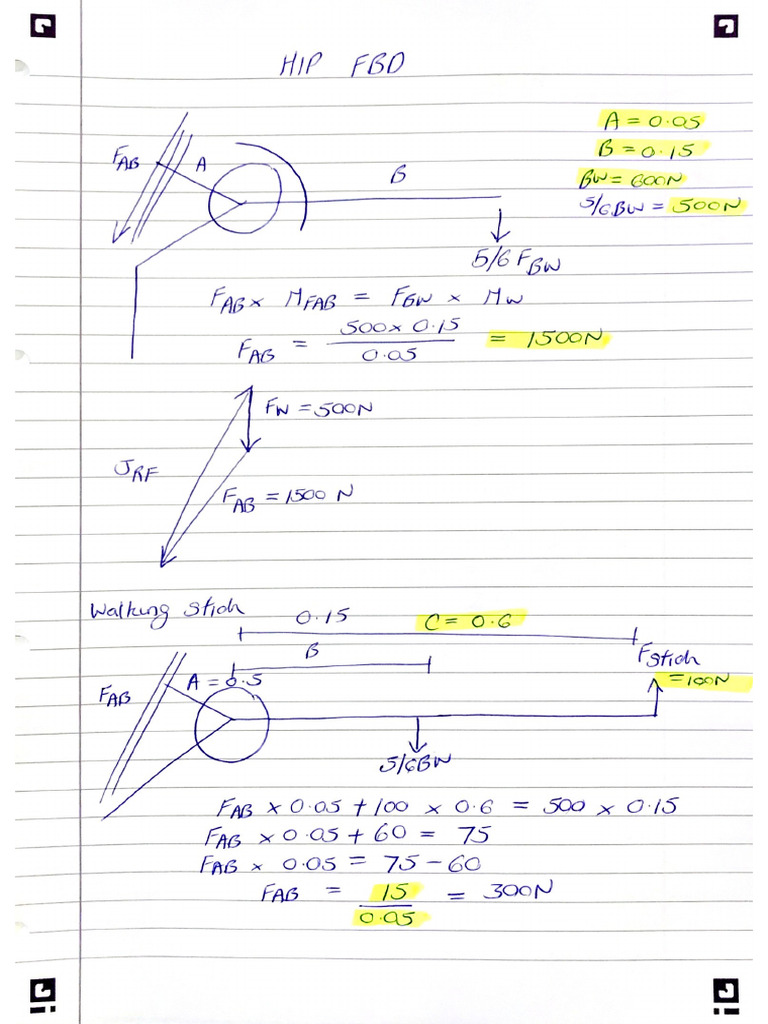 HIP FBD
A = 0.05
B = 0.15
BW = 600N
5/6 BW = 500N
FAB
A
B
5/6 FBW
FAB × MFAB = FBW × MW
FAB = 500 × 0.15 / 0.05 = 1500N
FW = 500N
JRF
FAB = 1500 N
Walking Stick
0.15
C = 0.6
B
Fstick
= 100N
FAB
A = 0.5
5/6BW
FAB × 0.05 + 100 × 0.6 = 500 × 0.15
FAB × 0.05 + 60 = 75
FAB × 0.05 = 75 - 60
FAB = 15 / 0.05 = 300N